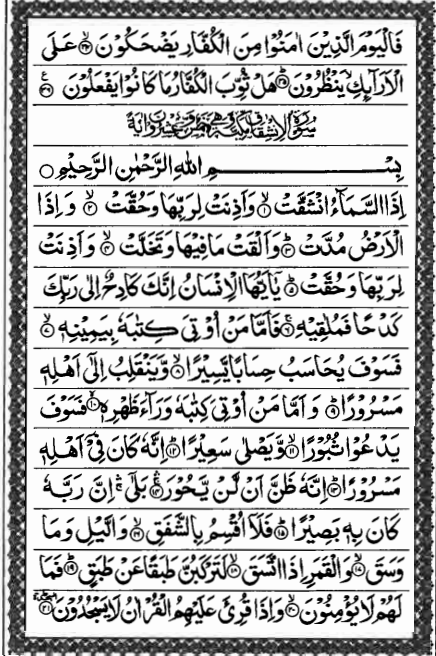 فَالْيَوْمَ الَّذِيْنَ اٰمَنُوْا مِنَ الْكُفَّارِ يَضْحَكُوْنَ ۙ﴿۳۴﴾ عَلَى
الْاَرَآىِٕكِ ۙ يَنْظُرُوْنَ ؕ﴿۳۵﴾ هَلْ ثُوِّبَ الْكُفَّارُ مَا كَانُوْا يَفْعَلُوْنَ ﴿۳۶﴾
سُوْرَةُ الْاِنْشِقَاقِ مَكِّيَّةٌ وَّهِيَ خَمْسٌ وَّعِشْرُوْنَ اٰيَةً
بِسْمِ اللّٰهِ الرَّحْمٰنِ الرَّحِيْمِ ○
اِذَا السَّمَآءُ انْشَقَّتْ ۙ﴿۱﴾ وَاَذِنَتْ لِرَبِّهَا وَحُقَّتْ ۙ﴿۲﴾ وَاِذَا
الْاَرْضُ مُدَّتْ ۙ﴿۳﴾ وَاَلْقَتْ مَا فِيْهَا وَتَخَلَّتْ ۙ﴿۴﴾ وَاَذِنَتْ
لِرَبِّهَا وَحُقَّتْ ؕ﴿۵﴾ يٰۤاَيُّهَا الْاِنْسَانُ اِنَّكَ كَادِحٌ اِلٰى رَبِّكَ
كَدْحًا فَمُلٰقِيْهِ ۚ﴿۶﴾ فَاَمَّا مَنْ اُوْتِيَ كِتٰبَهٗ بِيَمِيْنِهٖ ۙ﴿۷﴾
فَسَوْفَ يُحَاسَبُ حِسَابًا يَّسِيْرًا ۙ﴿۸﴾ وَّيَنْقَلِبُ اِلٰۤى اَهْلِهٖ
مَسْرُوْرًا ؕ﴿۹﴾ وَاَمَّا مَنْ اُوْتِيَ كِتٰبَهٗ وَرَآءَ ظَهْرِهٖ ۙ﴿۱۰﴾ فَسَوْفَ
يَدْعُوْا ثُبُوْرًا ۙ﴿۱۱﴾ وَّيَصْلٰى سَعِيْرًا ؕ﴿۱۲﴾ اِنَّهٗ كَانَ فِيْۤ اَهْلِهٖ
مَسْرُوْرًا ؕ﴿۱۳﴾ اِنَّهٗ ظَنَّ اَنْ لَّنْ يَّحُوْرَ ۚ﴿۱۴﴾ بَلٰۤى ۚ اِنَّ رَبَّهٗ
كَانَ بِهٖ بَصِيْرًا ؕ﴿۱۵﴾ فَلَاۤ اُقْسِمُ بِالشَّفَقِ ۙ﴿۱۶﴾ وَالَّيْلِ وَمَا
وَسَقَ ۙ﴿۱۷﴾ وَالْقَمَرِ اِذَا اتَّسَقَ ۙ﴿۱۸﴾ لَتَرْكَبُنَّ طَبَقًا عَنْ طَبَقٍ ؕ﴿۱۹﴾ فَمَا
لَهُمْ لَا يُؤْمِنُوْنَ ۙ﴿۲۰﴾ وَاِذَا قُرِئَ عَلَيْهِمُ الْقُرْاٰنُ لَا يَسْجُدُوْنَ ﴿۲۱﴾